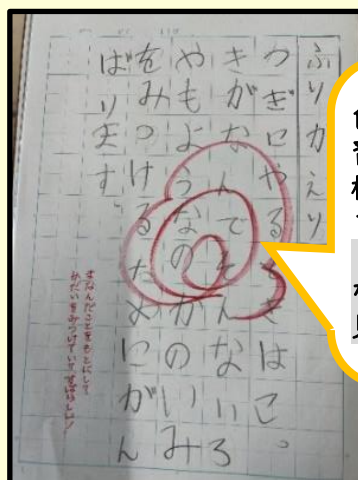 ふりかえり
つぎにやるときはこ。
きがなんでそんないろ
やもようなのかのいみ
をみつけるためにがん
ばります。
まなんだことをもとにして
かだいをみつけていてすばらしい！